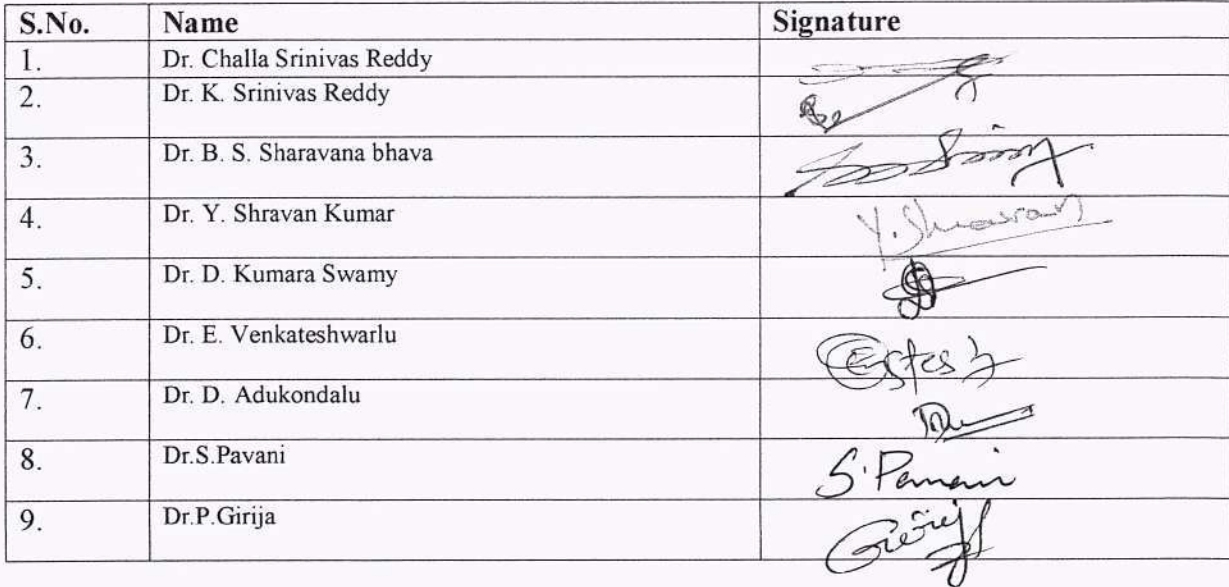 S.No. Name Signature
1. Dr. Challa Srinivas Reddy
2. Dr. K. Srinivas Reddy
3. Dr. B. S. Sharavana bhava
4. Dr. Y. Shravan Kumar Y. Shravan
5. Dr. D. Kumara Swamy
6. Dr. E. Venkateshwarlu
7. Dr. D. Adukondalu
8. Dr.S.Pavani S. Pavani
9. Dr.P.Girija